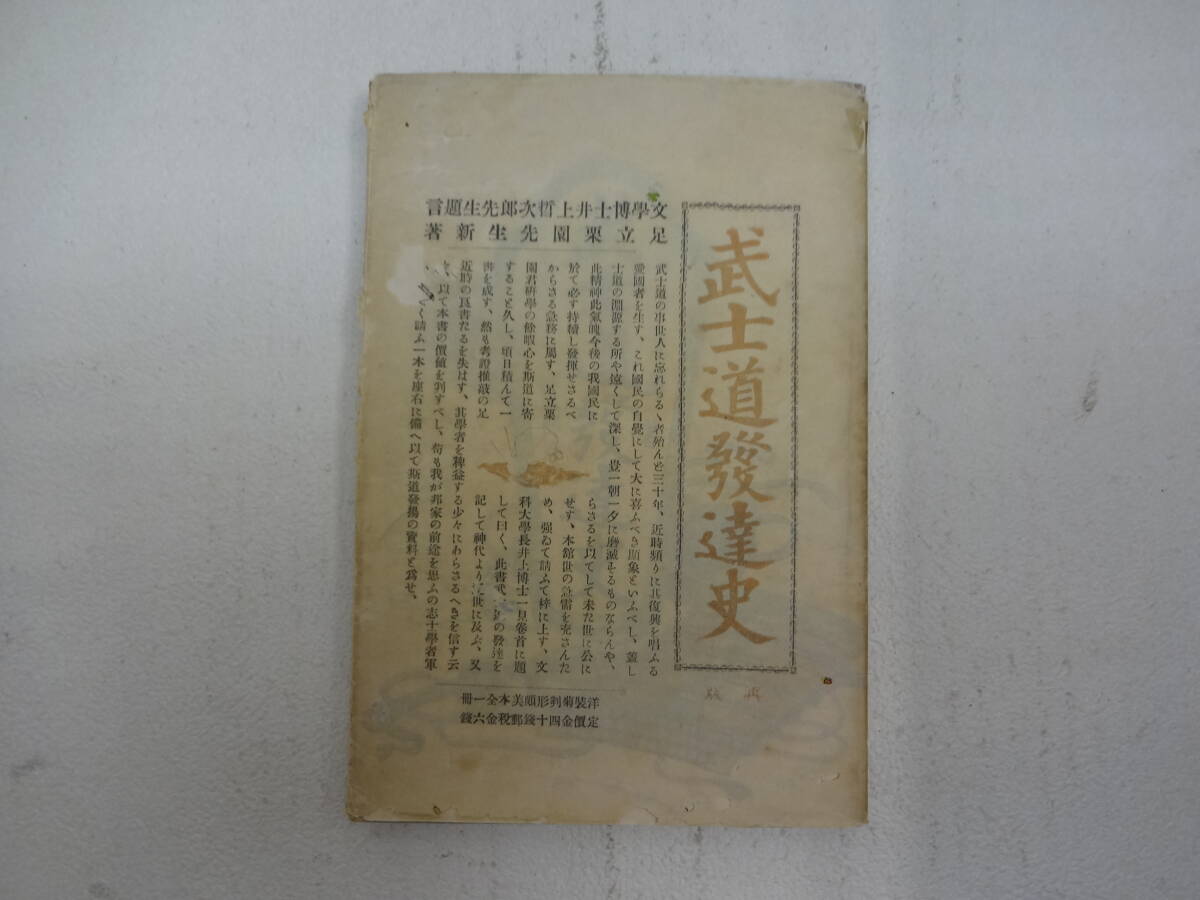 武士道發達史
再版
文學博士井上哲次郎先生題言
足立栗園先生新著
武士道の事世人に忘れらるゝ者殆んど三十年、近時頻りに其復興を唱ふる
愛國者を生す、これ國民の自覺にして大に喜ふべき現象といふべし、蓋し
士道の淵源する所や遠くして深し、豈一朝一夕に磨滅するものならんや、
此精神此氣魄今後の我國民に
於て必す持續し發揮せさるべ
からさる急務に屬す、足立栗
園君硏學の餘暇心を斯道に寄
すること久し、頃日積んて一
書を成す、然も考證推敲の足
らさるを以てして未た世に公に
せす、本舘世の急需を充さんた
め、强ゐて請ふて梓に上す、文
科大學長井上博士一見卷首に題
して曰く、此書武の發達を
記して神代より世に及ふ、又
近時の良書たるを失はす、其學者を裨益する少々にあらさるへきを信す云
以て本書の價値を判すべし、苟も我が邦家の前途を思ふの志士學者軍
く請ふ一本を座右に備へ以て斯道發揚の資料と爲せ、
洋裝菊判形頗美本全一冊
定價金四十錢郵稅金六錢